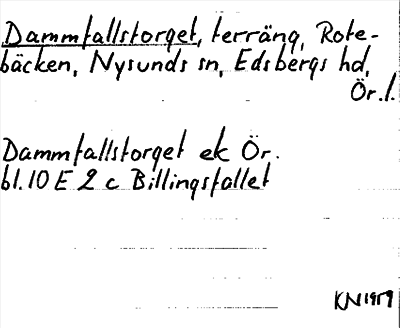 Dammfallstorget, terräng, Rote-
bäcken, Nysunds sn, Edsbergs hd,
Ör. l.
Dammfallstorget ek Ör.
bl. 10 E 2 c Billingsfallet
KN 1959